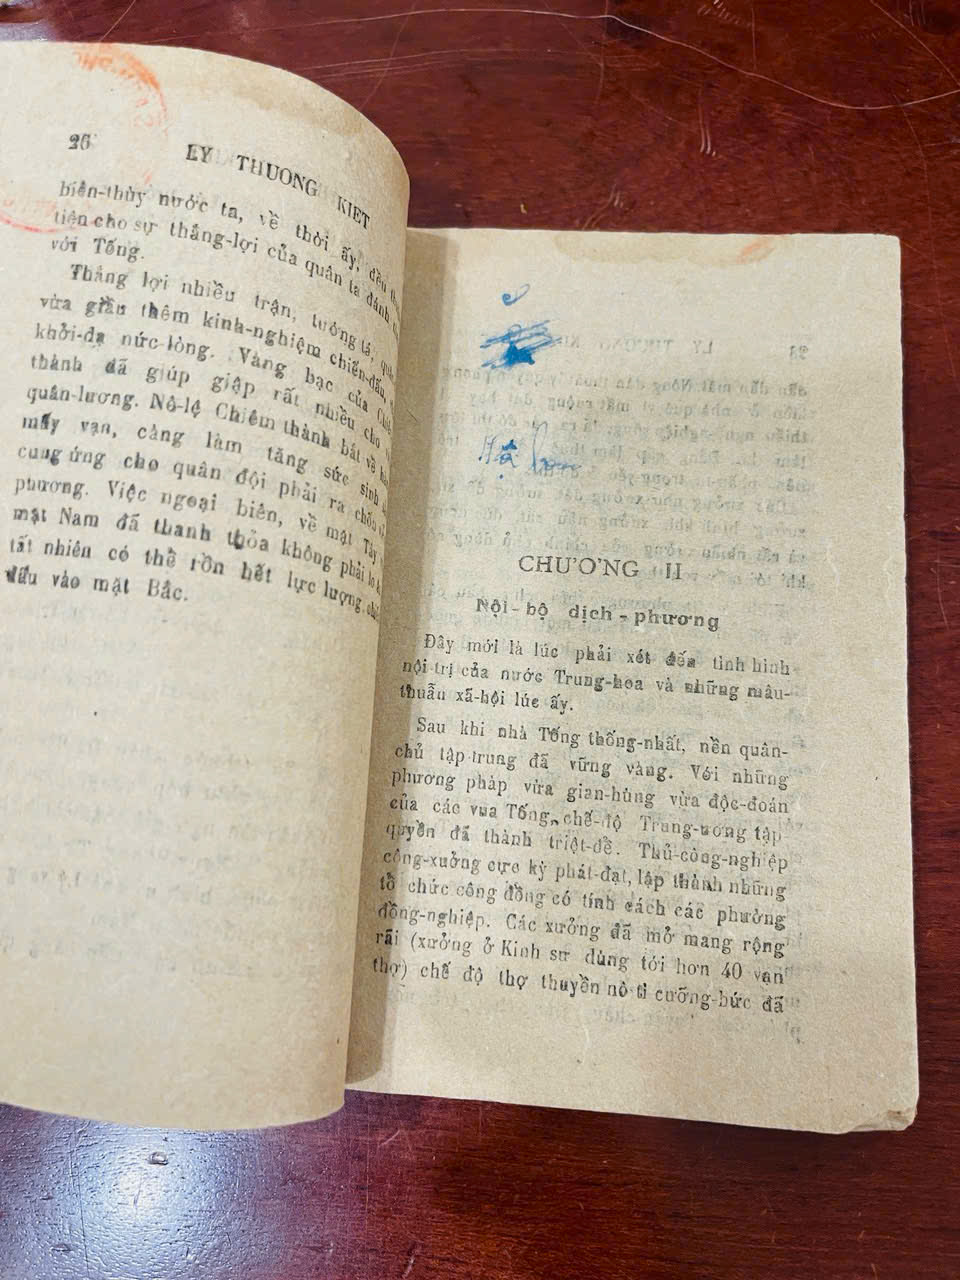 26 LY THUONG KIET
biên-thùy nước ta, về thời ấy, đều
tiện cho sự thắng-lợi của quân ta đánh
với Tống.
Thắng lợi nhiều trận, tướng tá, quân
vừa giầu thêm kinh-nghiệm chiến-đấu,
khởi-dạ nức-lòng. Vàng bạc của
thành đã giúp giập rất nhiều cho
quân-lương. Nô-lệ Chiêm thành bắt về
mấy vạn, càng làm tăng sức sinh
cung ứng cho quân đội phải ra chốn
phương. Việc ngoại biên, về mặt Tây
mặt Nam đã thanh thỏa không phải lo
tất nhiên có thể rồn hết lực lượng
đấu vào mặt Bắc.
CHƯƠNG II
Nội-bộ dịch-phương
Đây mới là lúc phải xét đến tình hình
nội-trị của nước Trung-hoa và những mâu-
thuẫn xã-hội lúc ấy.
Sau khi nhà Tống thống-nhất, nền quân-
chủ tập-trung đã vững vàng. Với những
phương pháp vừa gian-hùng vừa độc-đoán
của các vua Tống, chế-độ Trung-ương tập
quyền đã thành triệt-đề. Thủ-công-nghiệp
công-xưởng cực kỳ phát-đạt, lập thành những
tổ chức công đồng có tính cách các phường
đồng-nghiệp. Các xưởng đã mở mang rộng
rãi (xưởng ở Kinh sư dùng tới hơn 40 vạn
thợ) chế độ thợ thuyền nô-ti cưỡng-bức đã